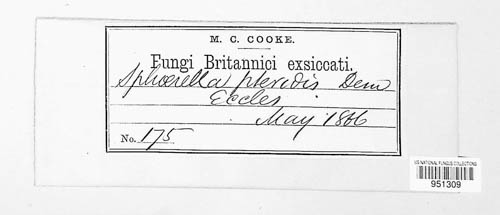 M. C. COOKE.
Fungi Britannici exsiccati.
Sphaerella pteridis Desm
Eccles
May 1866
No. 175
US NATIONAL FUNGUS COLLECTIONS
951309